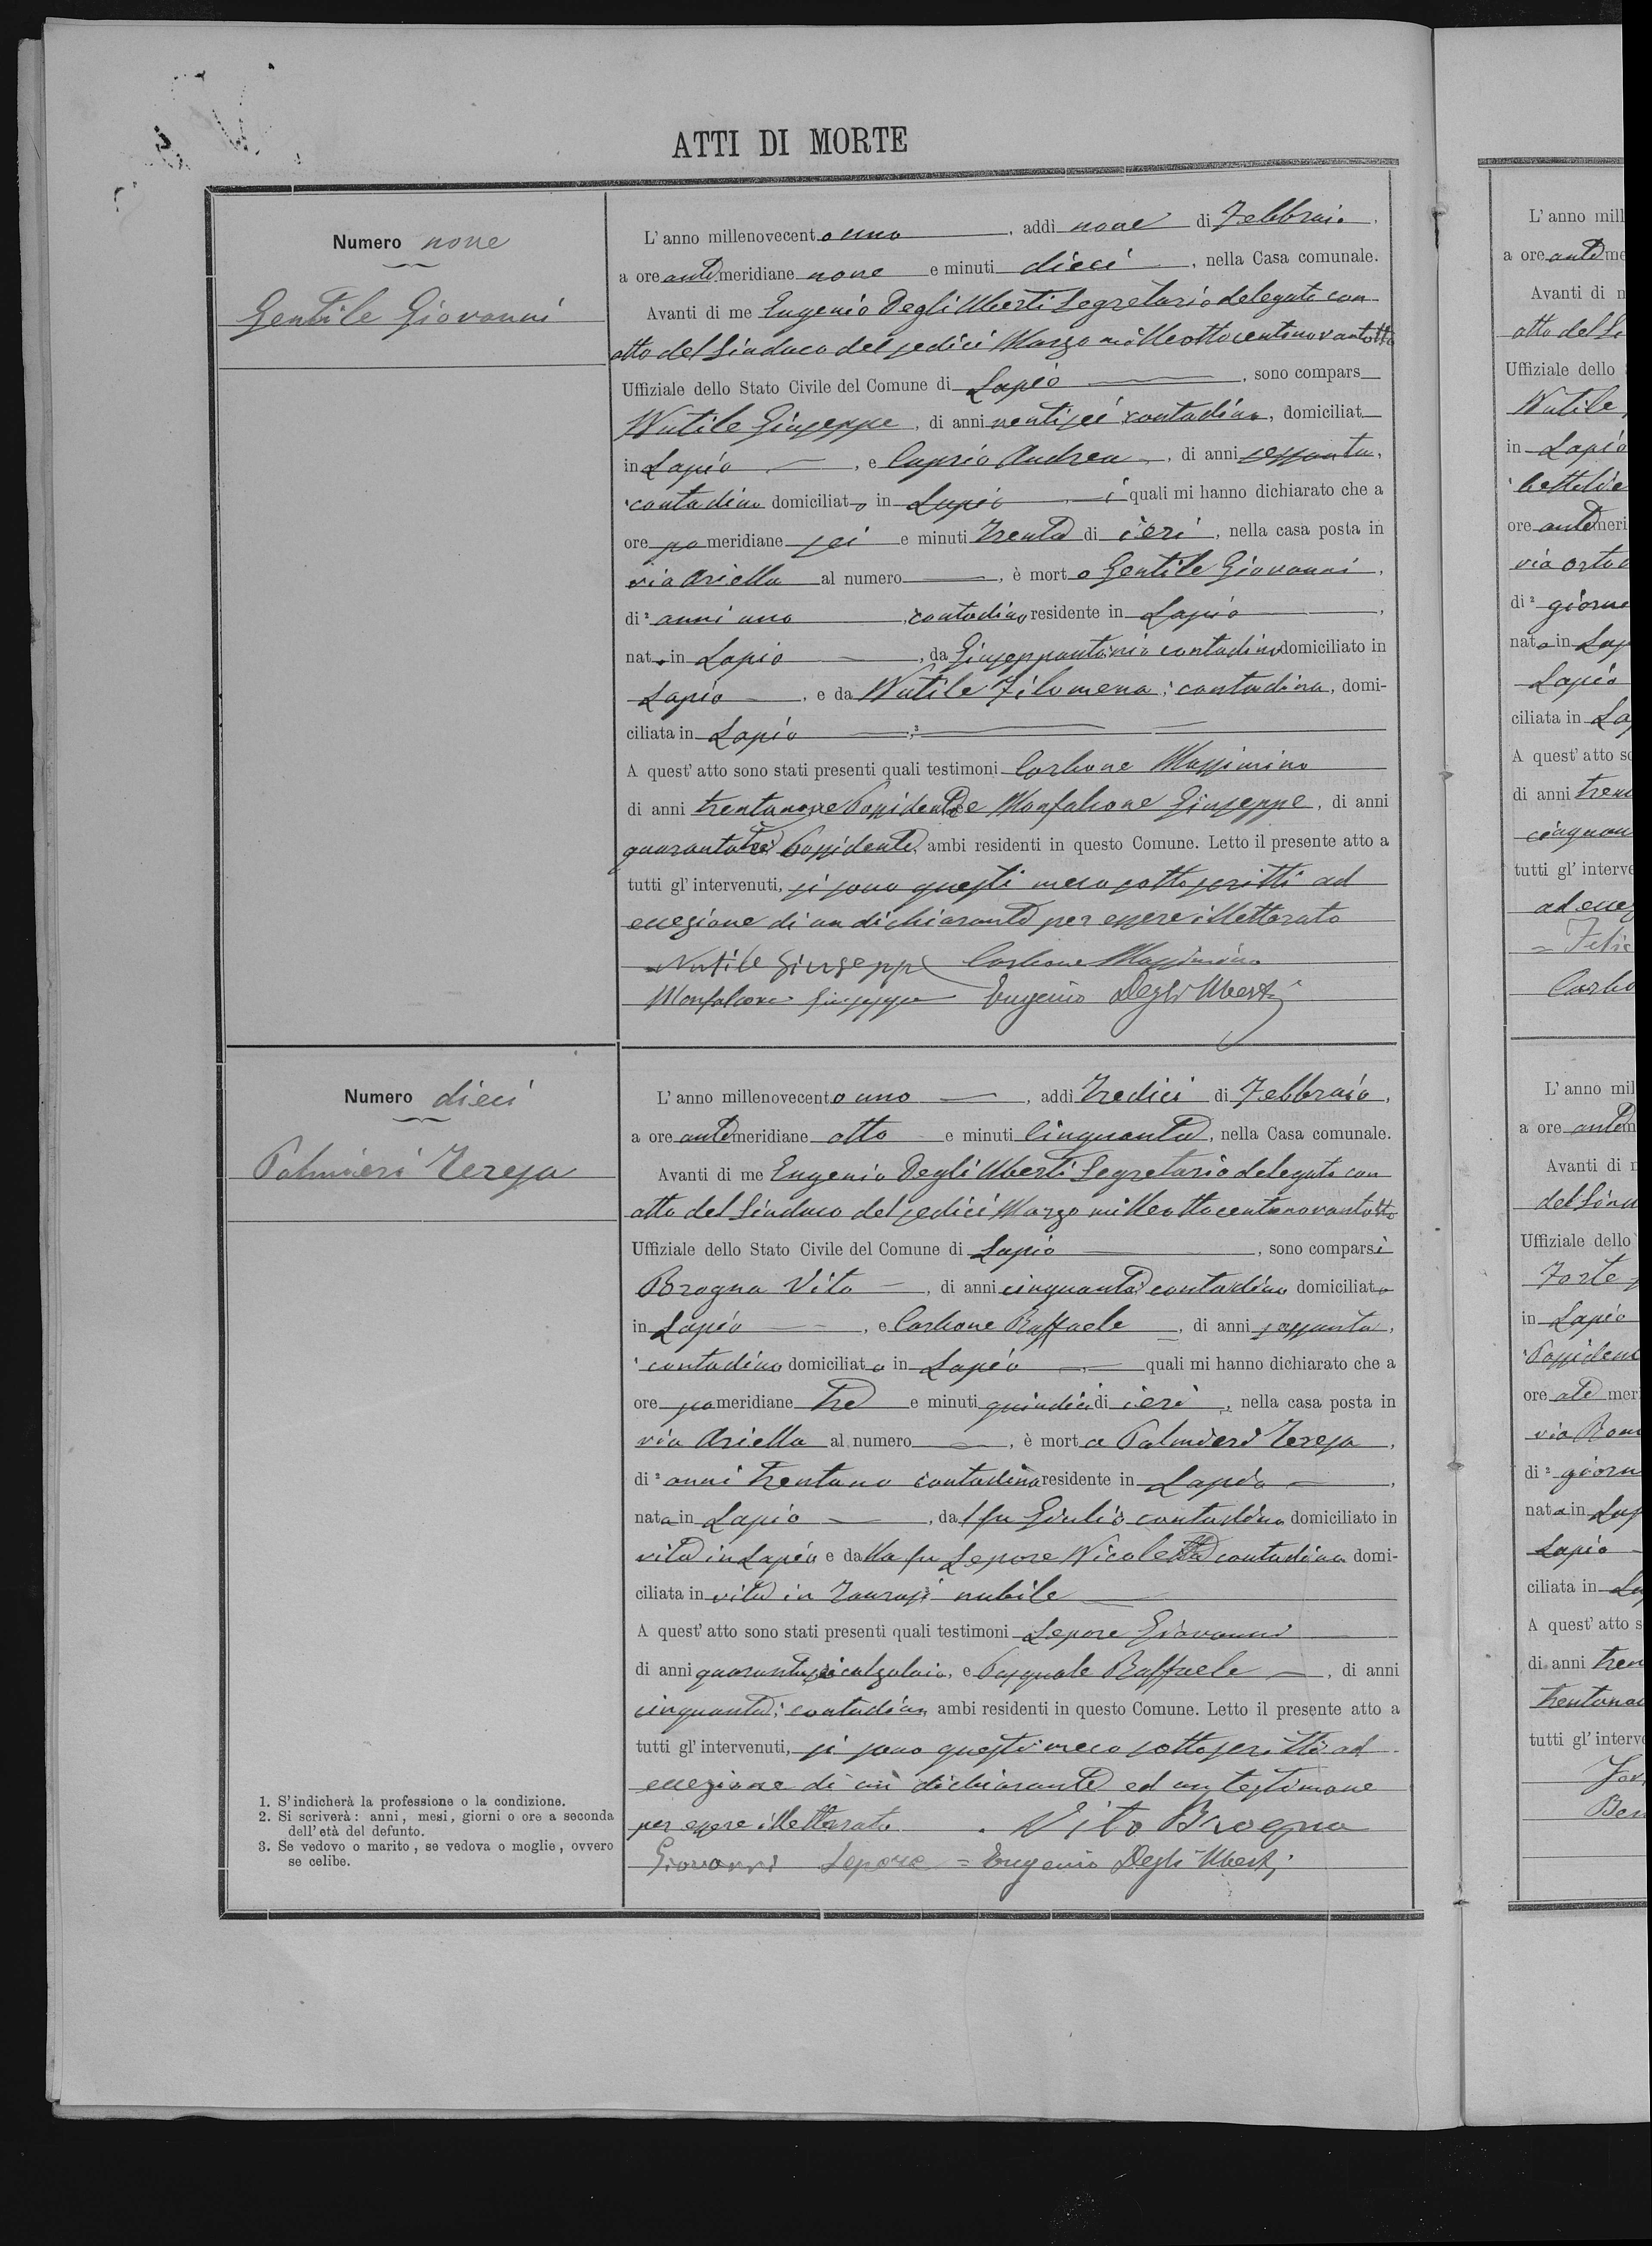 ATTI DI MORTE
Numero nove
Gentile Giovanni
L'anno millenovecento uno, addì nove di Febbraio,
a ore antimeridiane nove e minuti dieci, nella Casa comunale.
Avanti di me Eugenio Degli Uberti Segretario delegato con
atto del Sindaco del sedici Marzo milleottocentonovantotto
Uffiziale dello Stato Civile del Comune di Lapio, sono compars
Nutile Giuseppe, di anni ventisei contadino, domiciliat
in Lapio, e Caprio Andrea, di anni sessanta,
contadino domiciliato in Lapio i quali mi hanno dichiarato che a
ore pomeridiane sei e minuti trenta di ieri, nella casa posta in
via Ariella al numero, è morto Gentile Giovanni,
di² anni uno contadino residente in Lapio,
nato in Lapio, da Giuseppantonio contadino domiciliato in
Lapio, e da Nutile Filomena, contadina, domi-
ciliata in Lapio ;³
A quest'atto sono stati presenti quali testimoni Carbone Massimino
di anni trentanove Possidente e Monfalcone Giuseppe, di anni
quarantatre Possidente, ambi residenti in questo Comune. Letto il presente atto a
tutti gl'intervenuti, si sono questi meco sottoscritti ad
eccezione di un dichiarante per essere illetterato
Nutile Giuseppe Carbone Massimino
Monfalcone Giuseppe Eugenio Degli Uberti
Numero dieci
Palmieri Teresa
L'anno millenovecento uno, addì tredici di Febbraio,
a ore antimeridiane otto e minuti cinquanta, nella Casa comunale.
Avanti di me Eugenio Degli Uberti Segretario delegato con
atto del Sindaco del sedici Marzo milleottocentonovantotto
Uffiziale dello Stato Civile del Comune di Lapio, sono comparsi
Brogna Vito, di anni cinquanta contadino domiciliato
in Lapio, e Carbone Raffaele, di anni sessanta,
contadino domiciliato in Lapio quali mi hanno dichiarato che a
ore pomeridiane tre e minuti quindici di ieri, nella casa posta in
via Ariella al numero, è morta Palmieri Teresa,
di² anni trentuno contadina residente in Lapio,
nata in Lapio, dal fu Giulio contadino domiciliato in
vita in Lapio e dalla fu Lepore Nicoletta contadina domi-
ciliata in vita in Taurasi nubile
A quest'atto sono stati presenti quali testimoni Lepore Giovanni
di anni quarantasei calzolaio, e Pasquale Raffaele, di anni
cinquanta, contadino, ambi residenti in questo Comune. Letto il presente atto a
tutti gl'intervenuti, si sono questi meco sottoscritti ad
eccezione di un dichiarante ed un testimone
per essere illetterato Vito Brogna
Giovanni Lepore = Eugenio Degli Uberti
1. S'indicherà la professione o la condizione.
2. Si scriverà: anni, mesi, giorni o ore a seconda
dell'età del defunto.
3. Se vedovo o marito, se vedova o moglie, ovvero
se celibe.
L'anno mill
a ore antime
Avanti di
atto del
Uffiziale dello
Nutile
in Lapio
ore antimeri
via
di² giorni
nato in Lap
Lapio
ciliata in La
A quest'atto
di anni tren
cinquan
tutti gl'interve
ad ecce
Carbo
L'anno mil
a ore antim
Avanti di
del Sind
Uffiziale dello
Forte
in Lapio
Possident
ore mer
via Rom
di² giorn
nata in Lap
Lapio
ciliata in La
A quest'atto s
di anni tren
trentano
tutti gl'interv